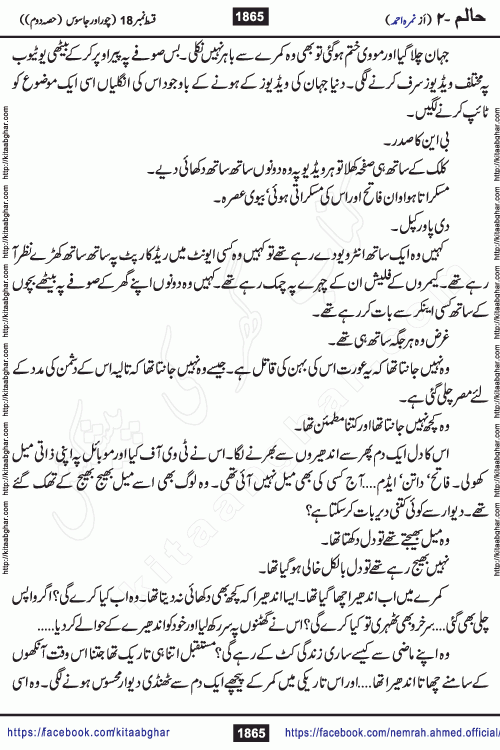 حالم -۲ (از نمرہ احمد) 1865 قسط نمبر 18 (چور اور جاسوس (حصہ دوم))
جہان چلا گیا اور مووی ختم ہو گئی تو بھی وہ کمرے سے باہر نہیں نکلی۔ بس صوفے پہ پیر اوپر کر کے بیٹھی یوٹیوب
پہ مختلف ویڈیوز سرف کرنے لگی۔ دنیا جہان کی ویڈیوز کے ہونے کے باوجود اس کی انگلیاں اسی ایک موضوع کو
ٹائپ کرنے لگیں۔
بی این کا صدر۔
کلک کے ساتھ ہی صفحہ کھلا تو ہر ویڈیو پہ وہ دونوں ساتھ ساتھ دکھائی دیے۔
مسکراتا ہوا وان فاتح اور اس کی مسکراتی ہوئی' بیوی عصرہ۔
دی پاور کپل۔
کہیں وہ ایک ساتھ انٹرویو دے رہے تھے تو کہیں وہ کسی ایونٹ میں ریڈ کارپٹ پہ ساتھ ساتھ کھڑے نظر آ
رہے تھے۔ کیمروں کے فلیش ان کے چہرے پہ چمک رہے تھے۔ کہیں وہ دونوں اپنے گھر کے صوفے پہ بیٹھے بچوں
کے ساتھ کسی اینکر سے بات کر رہے تھے۔
غرض وہ ہر جگہ ساتھ ہی تھے۔
وہ نہیں جانتا تھا کہ یہ عورت اس کی بہن کی قاتل ہے۔ جیسے وہ نہیں جانتا تھا کہ تالیہ اس کے دشمن کی مدد کے
لئے مصر چلی گئی ہے۔
وہ کچھ نہیں جانتا تھا اور کتنا مطمئن تھا۔
اس کا دل ایک دم پھر سے اندھیروں سے بھرنے لگا۔ اس نے ٹی وی آف کیا اور موبائل پہ اپنی ذاتی میل
کھولی۔ فاتح' داتن' ایڈم.... آج کسی کی بھی میل نہیں آئی تھی۔ وہ لوگ بھی اسے میل بھیج بھیج کے تھک گئے
تھے۔ دیوار سے کوئی کتنی دیر بات کر سکتا ہے؟
وہ میل بھیجتے تھے تو دل دکھتا تھا۔
نہیں بھیج رہے تھے تو دل بالکل خالی ہو گیا تھا۔
کمرے میں اب اندھیرا چھا گیا تھا۔ ایسا اندھیرا کہ کچھ بھی دکھائی نہ دیتا تھا۔ وہ اب کیا کرے گی؟ اگر واپس
چلی بھی گئی.... سرخرو بھی ٹھہری تو کیا کرے گی؟ اس نے گھٹنوں پہ سر رکھ لیا اور خود کو اندھیرے کے حوالے کر دیا.....
وہ اپنے ماضی سے کیسے ساری زندگی کٹ کے رہے گی؟ مستقبل اتنا ہی تاریک تھا جتنا اس وقت آنکھوں
کے سامنے چھاتا اندھیرا تھا.... اور اس تاریکی میں کمر کے پیچھے ایک دم سے ٹھنڈی دیوار محسوس ہونے لگی۔ وہ اسی
https://facebook.com/kitaabghar 1865 https://facebook.com/nemrah.ahmed.official/
http://kitaabghar.com http://kitaabghar.com http://kitaabghar.com http://kitaabghar.com http://kitaabghar.com
http://kitaabghar.com http://kitaabghar.com http://kitaabghar.com http://kitaabghar.com http://kitaabghar.com